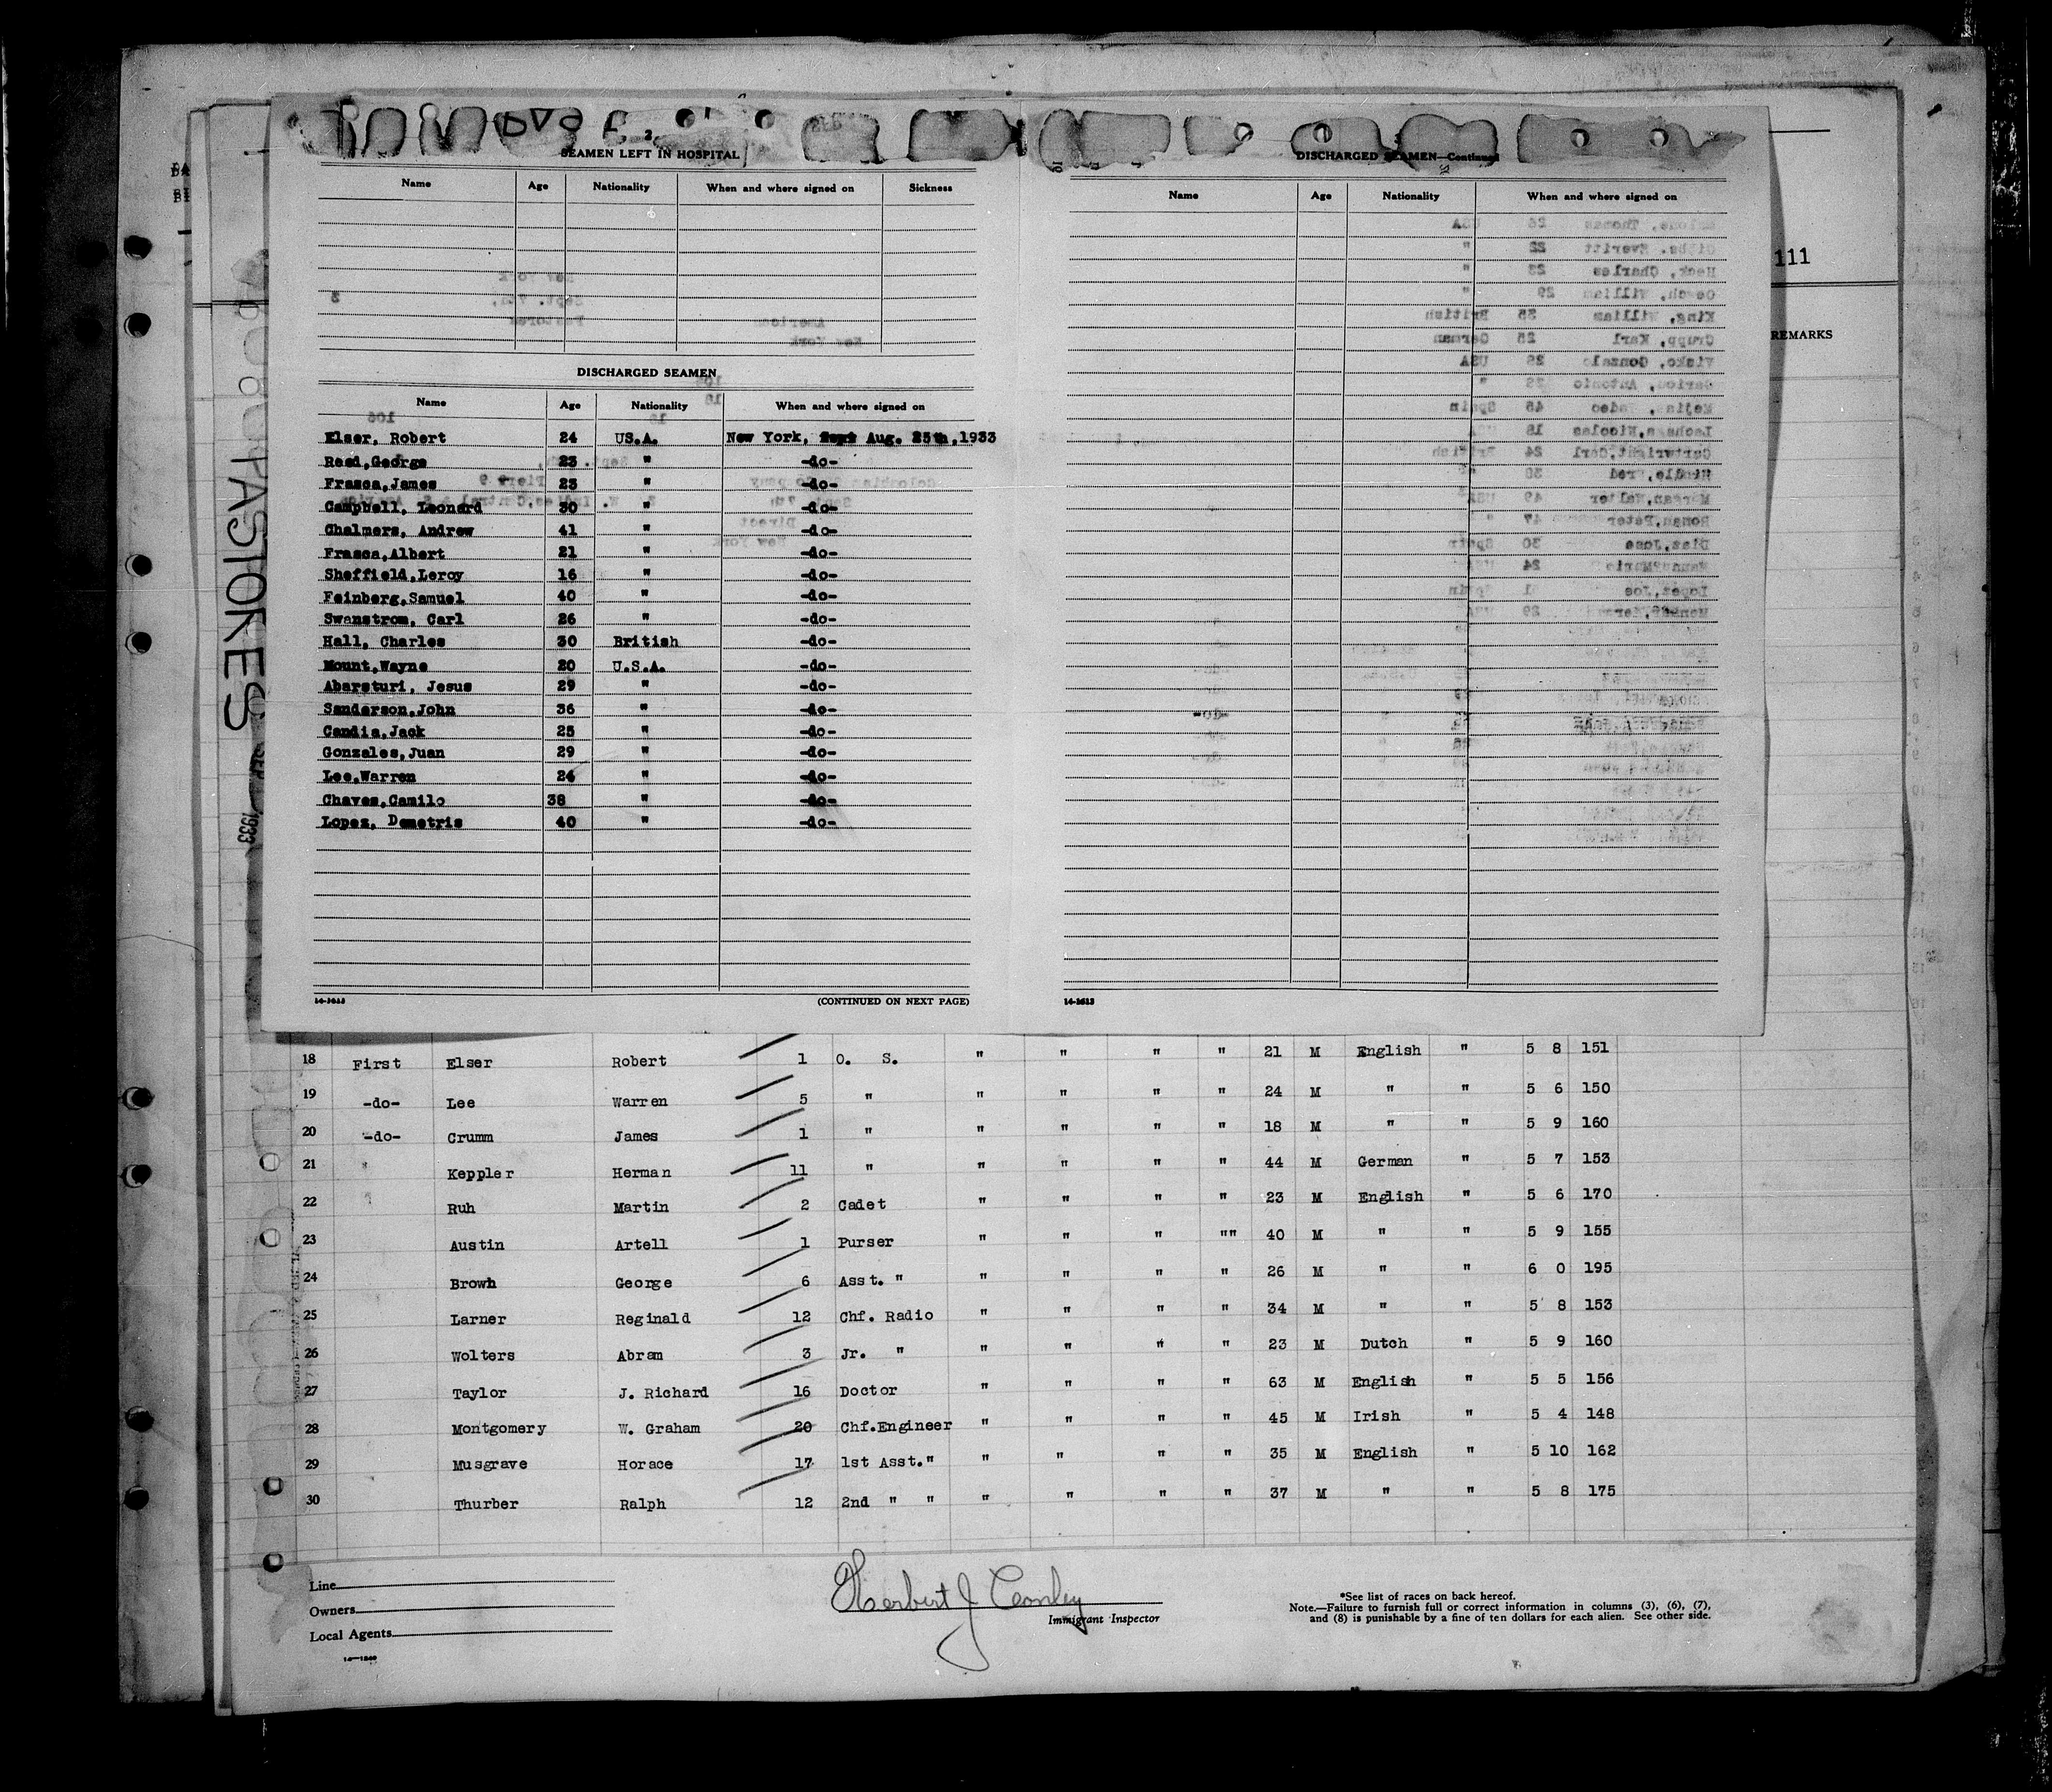 2
SEAMEN LEFT IN HOSPITAL
Name Age Nationality When and where signed on Sickness
DISCHARGED SEAMEN
Name Age Nationality When and where signed on
Elser, Robert 24 US.A. New York, Aug. 25th,1933
Reed,George 23 " -do-
Frasca,James 23 " -do-
Campbell, Leonard 30 " -do-
Chalmers, Andrew 41 " -do-
Frasca,Albert 21 " -do-
Sheffield,Leroy 16 " -do-
Feinberg,Samuel 40 " -do-
Swanstrom, Carl 26 " -do-
Hall, Charles 30 British -do-
Mount,Wayne 20 U.S.A. -do-
Abarsturi, Jesus 29 " -do-
Sanderson,John 36 " -do-
Candia,Jack 25 " -do-
Gonzales,Juan 29 " -do-
Lee,Warren 24 " -do-
Chaves,Camilo 38 " -do-
Lopez, Demetris 40 " -do-
14-3613 (CONTINUED ON NEXT PAGE)
DISCHARGED SEAMEN—Continued
Name Age Nationality When and where signed on
14-3613
111
REMARKS
PASTORES
1933
18 First Elser Robert 1 O. S. " " " " 21 M English " 5 8 151
19 -do- Lee Warren 5 " " " " " 24 M " " 5 6 150
20 -do- Crumm James 1 " " " " " 18 M " " 5 9 160
21 Keppler Herman 11 " " " " " 44 M German " 5 7 153
22 Ruh Martin 2 Cadet " " " " 23 M English " 5 6 170
23 Austin Artell 1 Purser " " " "" 40 M " " 5 9 155
24 Brown George 6 Asst. " " " " " 26 M " " 6 0 195
25 Larner Reginald 12 Chf. Radio " " " " 34 M " " 5 8 153
26 Wolters Abram 3 Jr. " " " " " 23 M Dutch " 5 9 160
27 Taylor J. Richard 16 Doctor " " " " 63 M English " 5 5 156
28 Montgomery W. Graham 20 Chf.Engineer " " " " 45 M Irish " 5 4 148
29 Musgrave Horace 17 1st Asst." " " " " 35 M English " 5 10 162
30 Thurber Ralph 12 2nd " " " " " " 37 M " " 5 8 175
Line
Owners
Local Agents
Herbert J Conley
Immigrant Inspector
*See list of races on back hereof.
Note.—Failure to furnish full or correct information in columns (3), (6), (7),
and (8) is punishable by a fine of ten dollars for each alien. See other side.